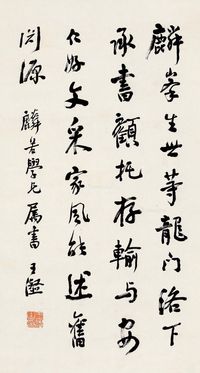 麟峯生世等龍門洛下
承書顧托存輸与安
仁好文采家風能述舊
淵源
麟若學兄屬書 王